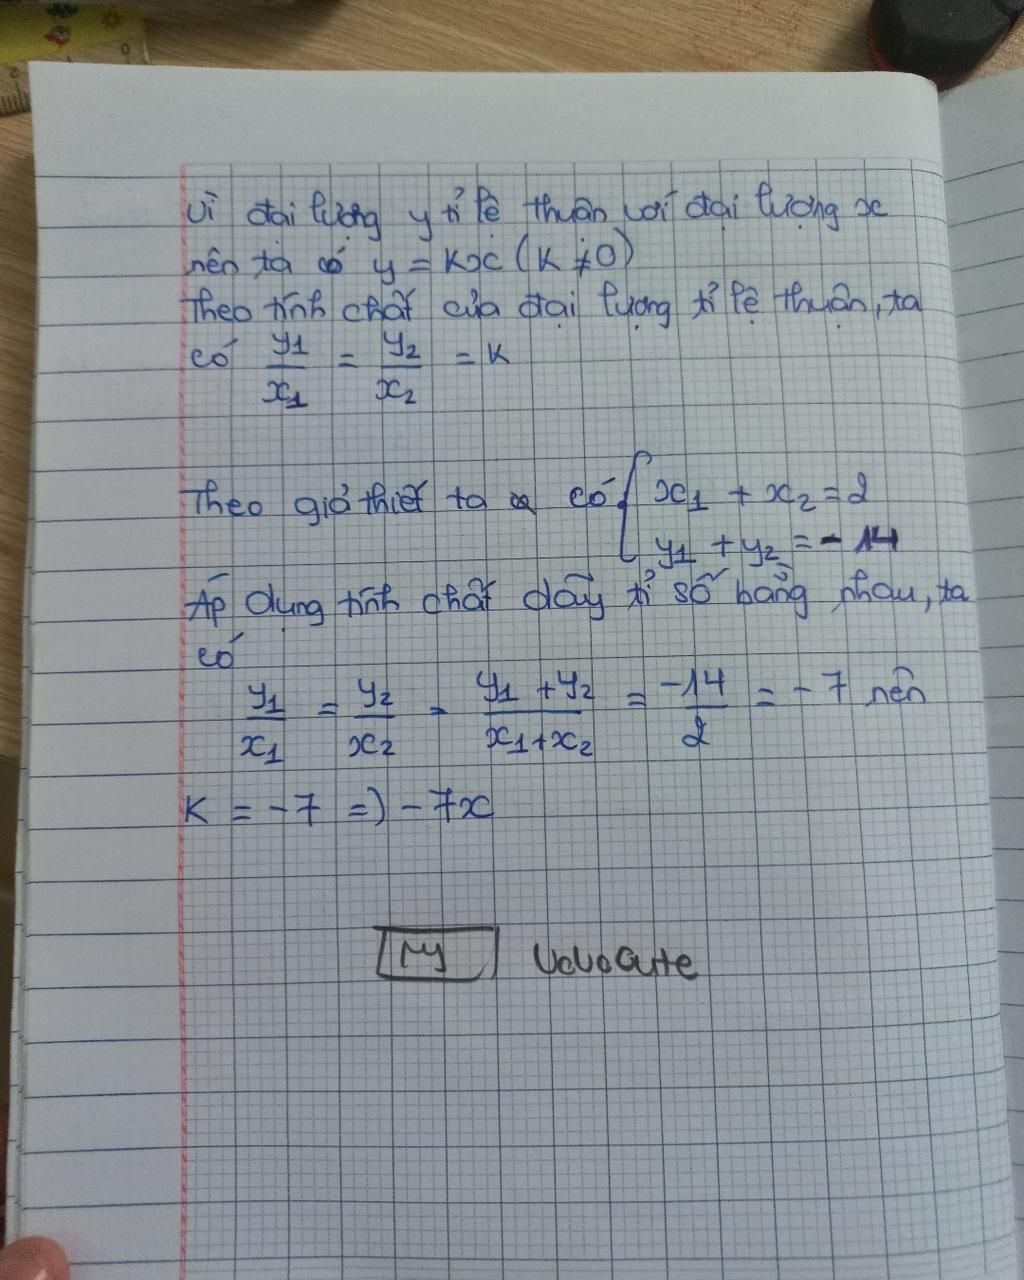 Vì đại lượng y tỉ lệ thuận với đại lượng x
nên ta có y = Kx (K ≠ 0)
Theo tính chất của đại lượng tỉ lệ thuận, ta
có y1/x1 = y2/x2 = K
Theo giả thiết ta có { x1 + x2 = 2
y1 + y2 = - 14
Áp dụng tính chất dãy tỉ số bằng nhau, ta
có
y1/x1 = y2/x2 = y1 + y2/x1 + x2 = -14/2 = - 7 nên
K = -7 => - 7x